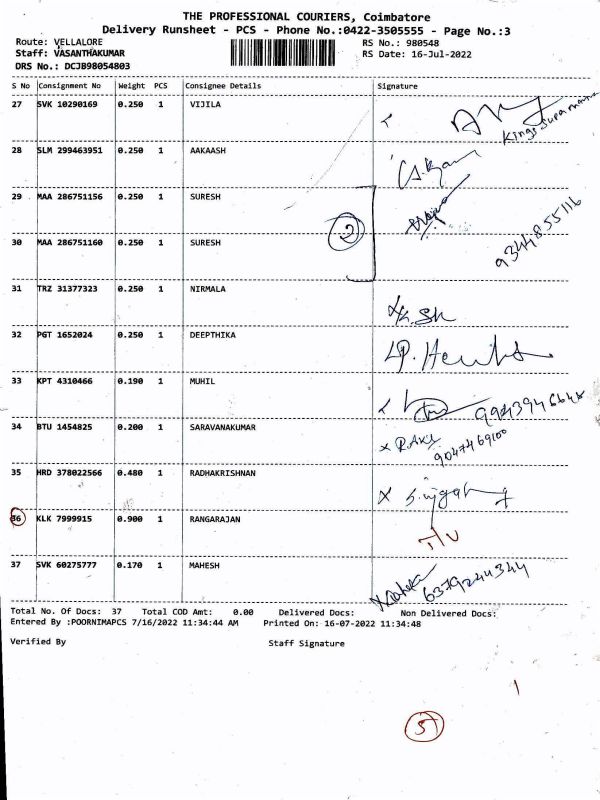 THE PROFESSIONAL COURIERS, Coimbatore
Delivery Runsheet - PCS - Phone No.:0422-3505555 - Page No.:3
Route: VELLALORE RS No.: 980548
Staff: VASANTHAKUMAR RS Date: 16-Jul-2022
DRS No.: DCJB98054803
S No Consignment No Weight PCS Consignee Details Signature
27 SVK 10290169 0.250 1 VIJILA
28 SLM 299463951 0.250 1 AAKAASH
29 MAA 286751156 0.250 1 SURESH
2 9344855116
30 MAA 286751160 0.250 1 SURESH
31 TRZ 31377323 0.250 1 NIRMALA
32 PGT 1652024 0.250 1 DEEPTHIKA
33 KPT 4310466 0.190 1 MUHIL
34 BTU 1454825 0.200 1 SARAVANAKUMAR
9047469100
35 HRD 378022566 0.480 1 RADHAKRISHNAN
36 KLK 7999915 0.900 1 RANGARAJAN
37 SVK 60275777 0.170 1 MAHESH
6379244344
Total No. Of Docs: 37 Total COD Amt: 0.00 Delivered Docs: Non Delivered Docs:
Entered By :POORNIMAPCS 7/16/2022 11:34:44 AM Printed On: 16-07-2022 11:34:48
Verified By Staff Signature
1
5